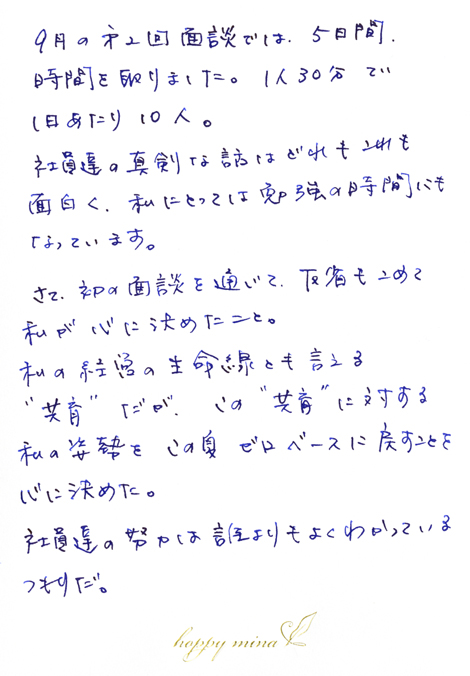 9月の第2回面談では、5日間、
時間を取りました。1人30分で
1日あたり10人。
社員達の真剣な話はどれもこれも
面白く、私にとっては勉強の時間にも
なっています。
さて、初の面談を通じて、反省もこめて
私が心に決めたこと。
私の経営の生命線とも言える
“共育”だが、この“共育”に対する
私の姿勢をこの夏ゼロベースに戻すことを
心に決めた。
社員達の努力は誰よりもよくわかっている
つもりだ。
happy mina